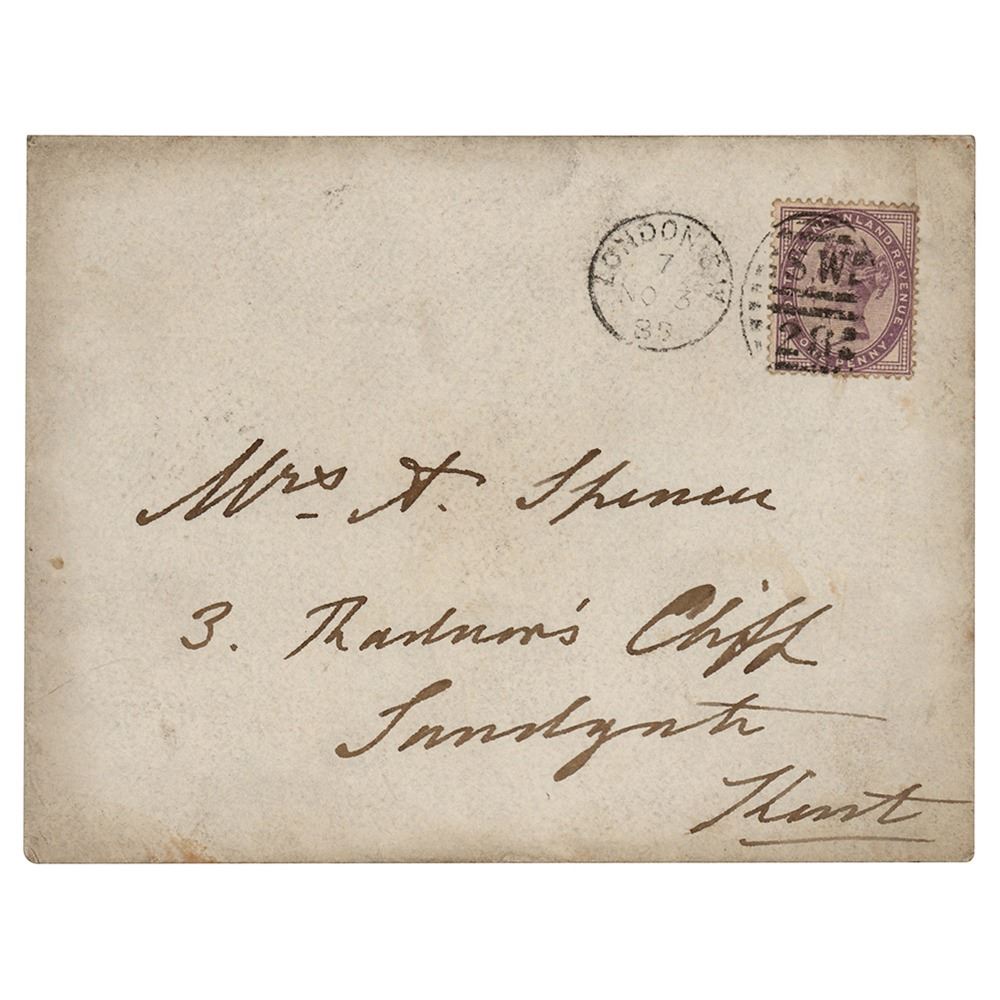 LONDON S.W
7
NO 3
88
POSTAGE AND INLAND REVENUE
ONE PENNY
S.W
28
Mrs A. Spencer
3. Radnor's Cliff
Sandgate
Kent